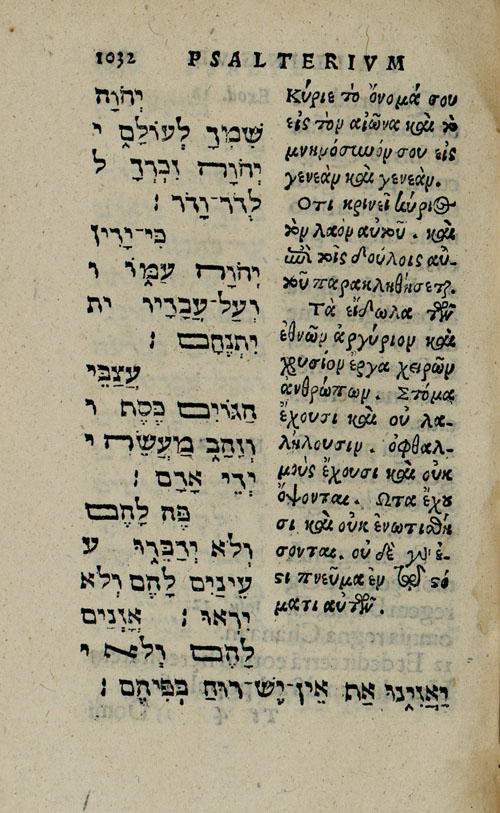 1032 PSALTERIVM
יְהֹוָה
שִׁמְךָ לְעוֹלָם י
יְהֹוָה זִכְרְךָ ל
לְדֹר־וָדֹר :
כִּי־יָדִין
יְהֹוָה עַמּוֹ ו
וְעַל־עֲבָדָיו ית
יִתְנֶחָם :
עֲצַבֵּי
הַגּוֹיִם כֶּסֶף ו
וְזָהָב מַעֲשֵׂה י
יְדֵי אָדָם :
פֶּה לָהֶם
וְלֹא יְדַבֵּרוּ ע
עֵינַיִם לָהֶם וְלֹא
יִרְאוּ : אָזְנַיִם
לָהֶם וְלֹא י
יַאֲזִינוּ אַף אֵין־יֶשׁ־רוּחַ בְּפִיהֶם :
Κύριε τὸ ὄνομά σου
εἰς τὸν αἰῶνα καὶ τὸ
μνημόσυνόν σου εἰς
γενεὰν καὶ γενεάν.
Οτι κρινεῖ κύριος
τὸν λαὸν αὐτοῦ . καὶ
ἐπὶ τοῖς δούλοις αὐ-
τοῦ παρακληθήσεται.
Τὰ εἴδωλα τῶν
ἐθνῶν ἀργύριον καὶ
χρυσίον ἔργα χειρῶν
ἀνθρώπων. Στόμα
ἔχουσι καὶ οὐ λα-
λήλουσιν. ὀφθαλ-
μοὺς ἔχουσι καὶ οὐκ
ὄψονται. Ωτα ἔχου
σι καὶ οὐκ ἐνωτισθή
σονται. οὐδὲ γάρ ἐ-
στι πνεῦμα ἐν τῷ στό
ματι αὐτῶν.